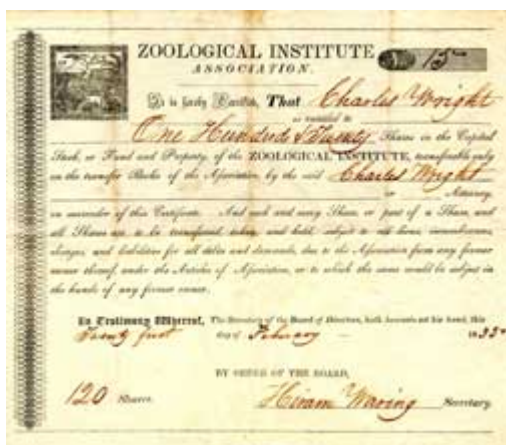 ZOOLOGICAL INSTITUTE
ASSOCIATION.
No 15
It is hereby Certified, That Charles Wright
is entitled to
One Hundred & Twenty Shares in the Capital
Stock, or Fund and Property, of the ZOOLOGICAL INSTITUTE, transferable only
on the transfer Books of the Association by the said Charles Wright
or Attorney,
on surrender of this Certificate. And each and every Share, or part of a Share, and
all Shares are to be transferred, taken, and held, subject to all liens, incumbrances,
charges, and liabilities for all debts and demands, due to the Association from any former
owner thereof, under the Articles of Association, or to which the same would be subject in
the hands of any former owner.
In Testimony Whereof, The Secretary of the Board of Directors, hath hereunto set his hand, this
Twenty first day of February
BY ORDER OF THE BOARD,
120 Shares. Hiram Waring Secretary.